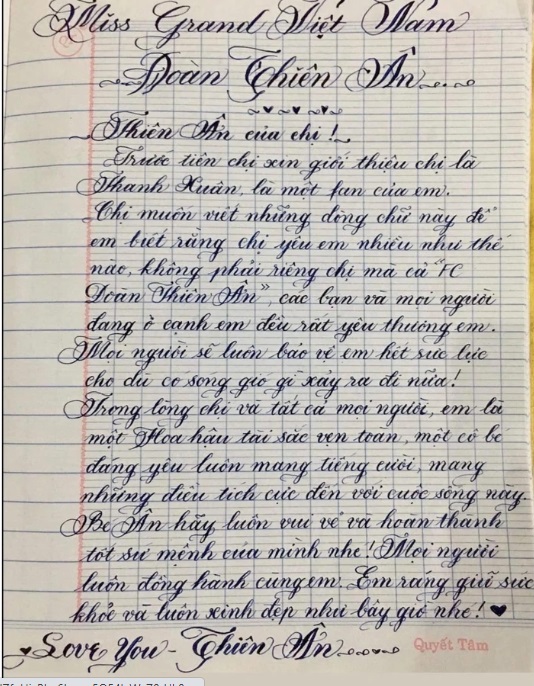 Miss Grand Việt Nam
Đoàn Thiên Ân
Thiên Ân của chị!
Trước tiên chị xin giới thiệu chị là
Thanh Xuân, là một fan của em.
Chị muốn viết những dòng chữ này để
em biết rằng chị yêu em nhiều như thế
nào, không phải riêng chị mà cả "FC
Đoàn Thiên Ân", các bạn và mọi người
đang ở cạnh em đều rất yêu thương em.
Mọi người sẽ luôn bảo vệ em hết sức lực
cho dù có sóng gió gì xảy ra đi nữa!
Trong lòng chị và tất cả mọi người, em là
một Hoa hậu tài sắc vẹn toàn, một cô bé
đáng yêu luôn mang tiếng cười, mang
những điều tích cực đến với cuộc sống này.
Bé Ân hãy luôn vui vẻ và hoàn thành
tốt sứ mệnh của mình nhé! Mọi người
luôn đồng hành cùng em. Em ráng giữ sức
khỏe và luôn xinh đẹp như bây giờ nhé! ♥
Love You - Thiên Ân
Quyết Tâm